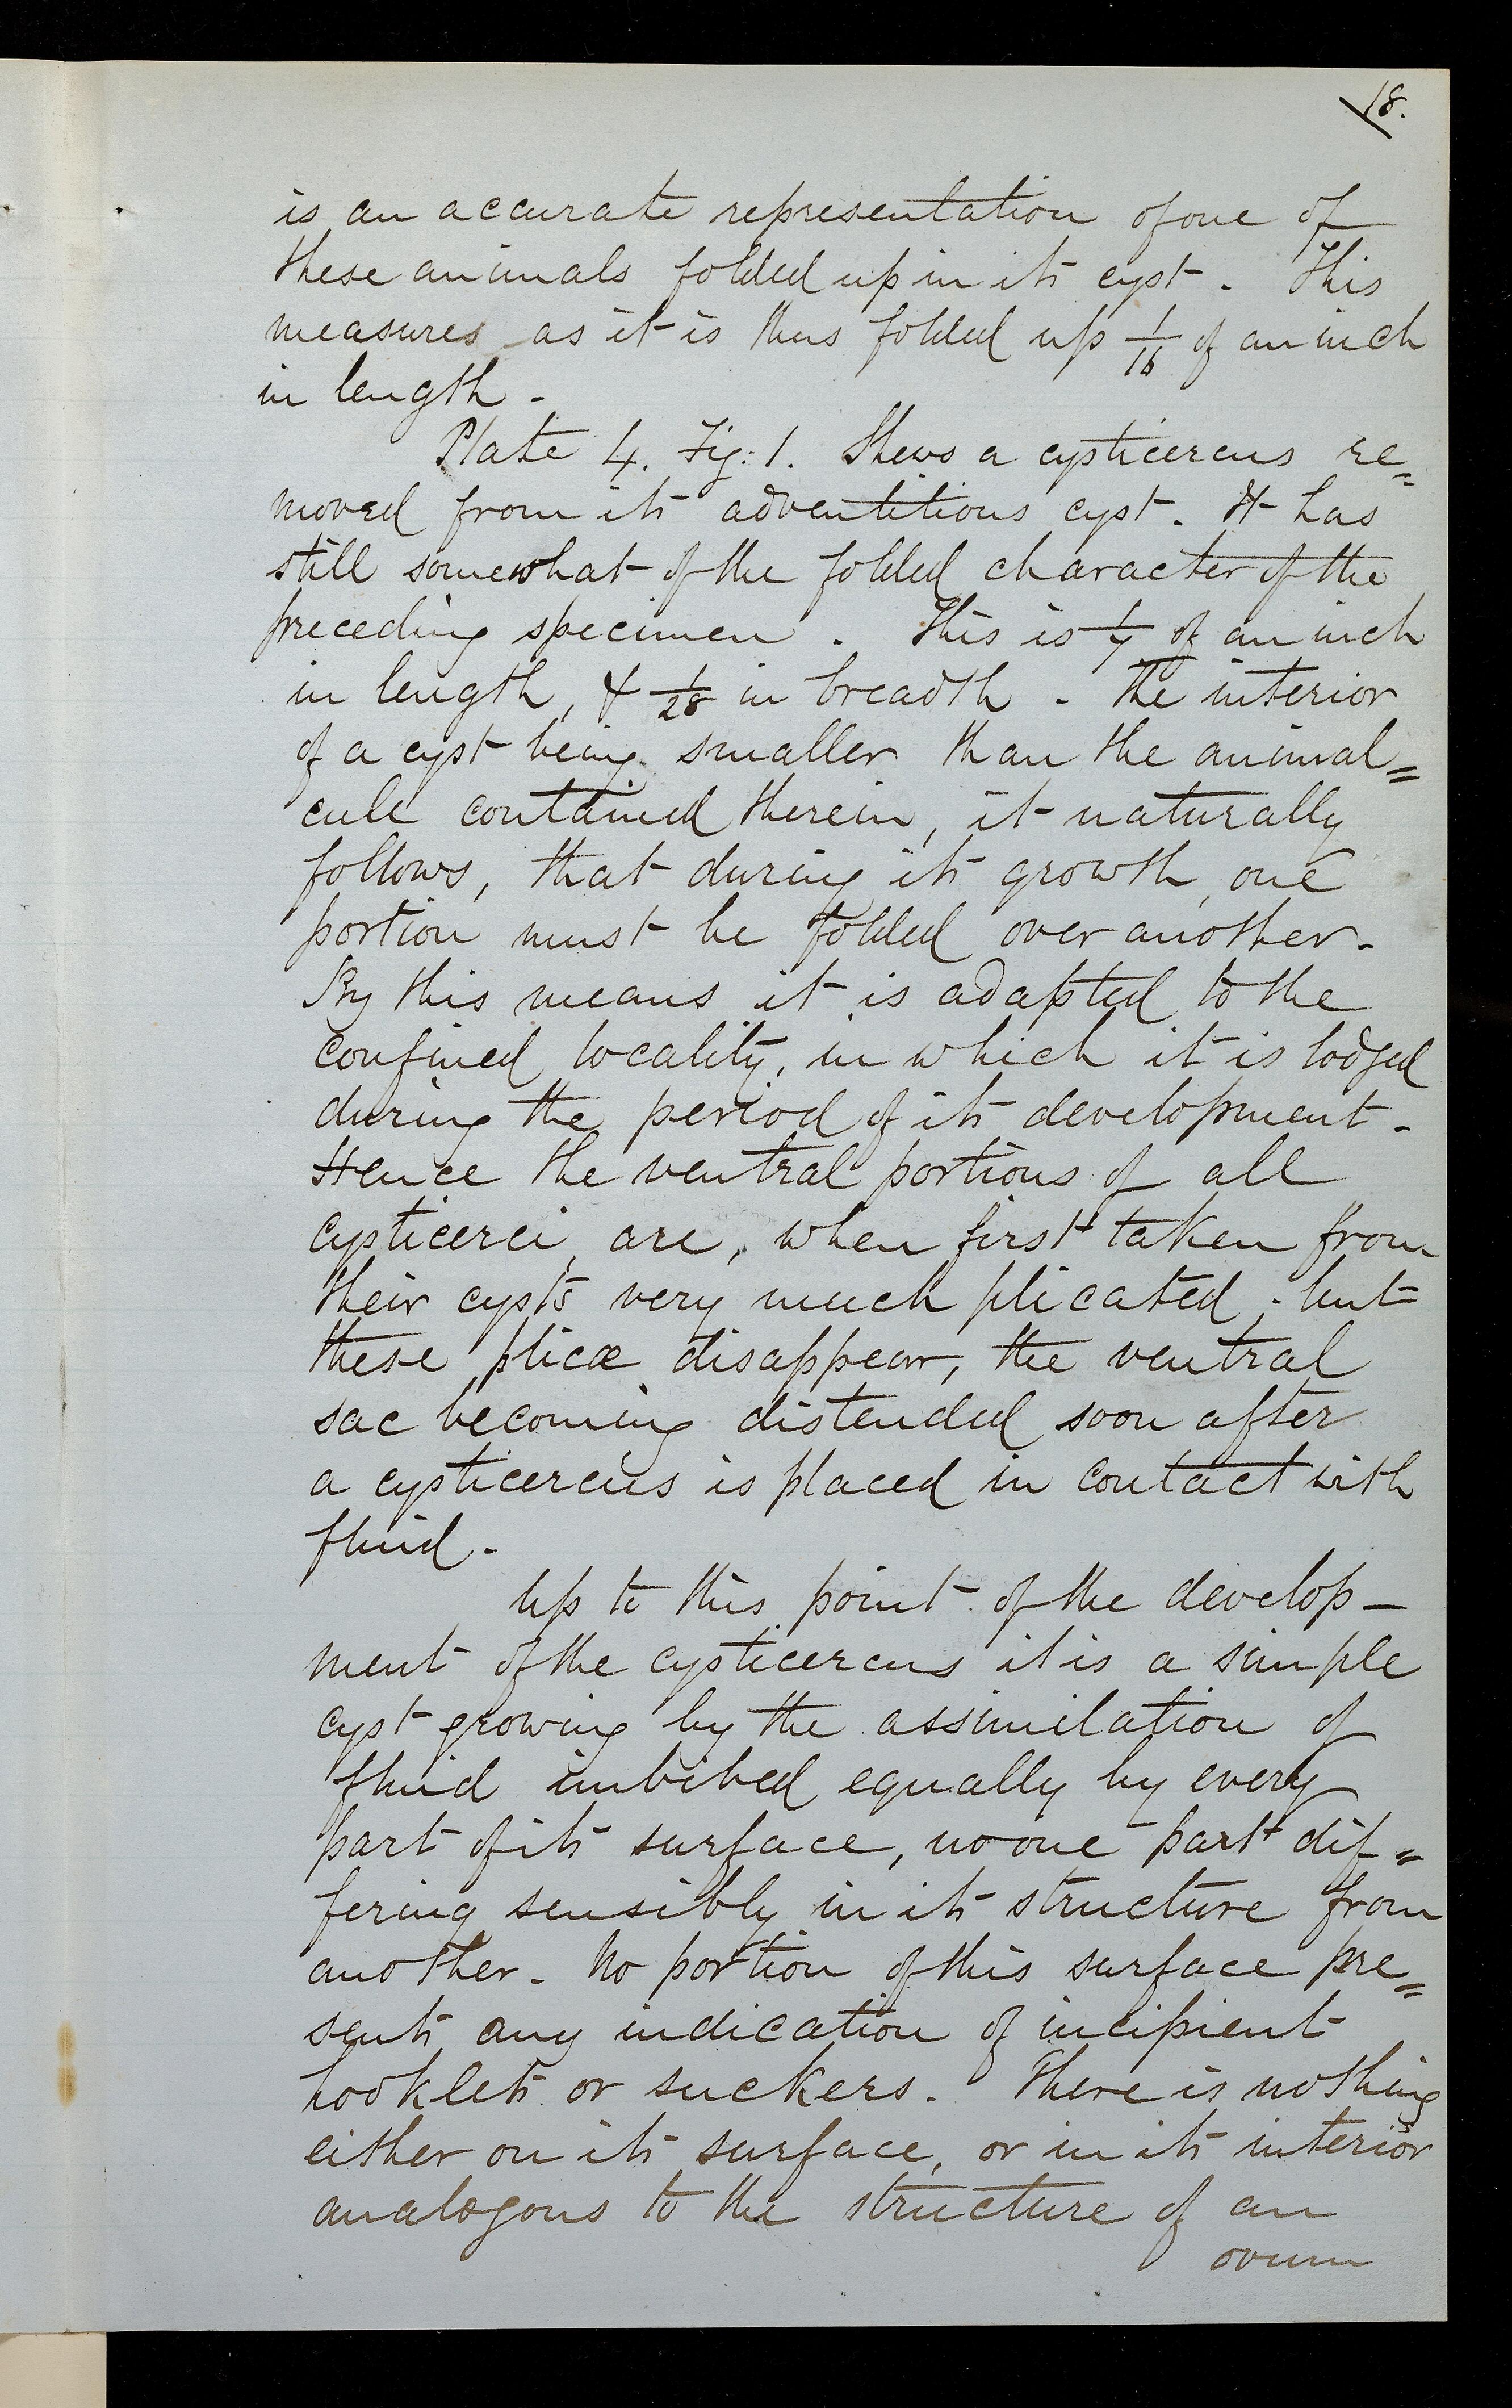 18.
is an accurate representation of one of
these animals folded up in its cyst. This
measures as it is thus folded up 1/16 of an inch
in length.
Plate 4. Fig: 1. Shews a cysticercus re=
moved from its adventitious cyst. It has
still somewhat of the folded character of the
preceding specimen. This is 1/7 of an inch
in length, & 1/28 in breadth. The interior
of a cyst being smaller than the animal=
cule contained therein, it naturally
follows, that during its growth, one
portion must be folded over another.
By this means it is adapted to the
confined locality, in which it is lodged
during the period of its development.
Hence the ventral portions of all
cysticerci, are, when first taken from
their cysts very much plicated. but
these plicæ disappear, the ventral
sac becoming distended soon after
a cysticercus is placed in contact with
fluid.
Up to this point of the develop-
ment of the cysticercus it is a simple
cyst growing by the assimilation of
fluid imbibed equally by every
part of its surface, no one part dif=
fering sensibly in its structure from
another. No portion of this surface pre=
sents any indication of incipient
hooklets or suckers. There is nothing
either on its surface, or in its interior
analogous to the structure of an
ovum